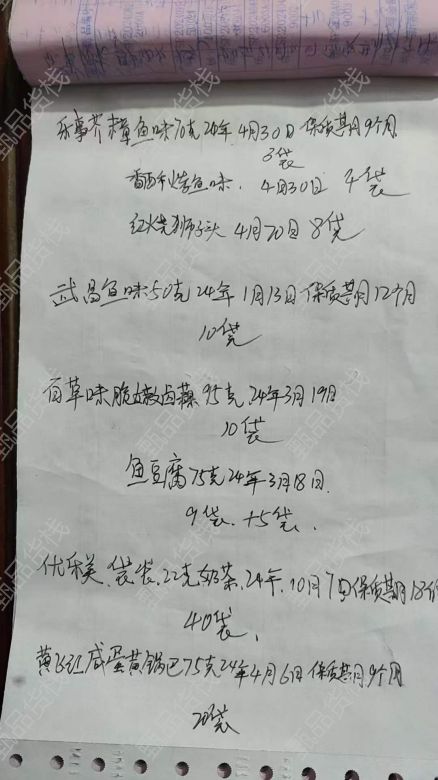 乐事芥末章鱼味70克24年4月30日保质期9个月
8袋
香酥烤鱼味. 4月30日 4袋
红烧狮子头 4月20日 8袋
武昌鱼味50克24年1月13日保质期12个月
10袋
百草味脆嫩卤藕95克24年3月19日
10袋
鱼豆腐75克24年3月18日.
9袋.+5袋.
优乐美.袋装.22克奶茶.24年.10月7日保质期18个
40袋.
黄飞红咸蛋黄锅巴75克24年4月6日保质期9个月
20袋
甄品货栈